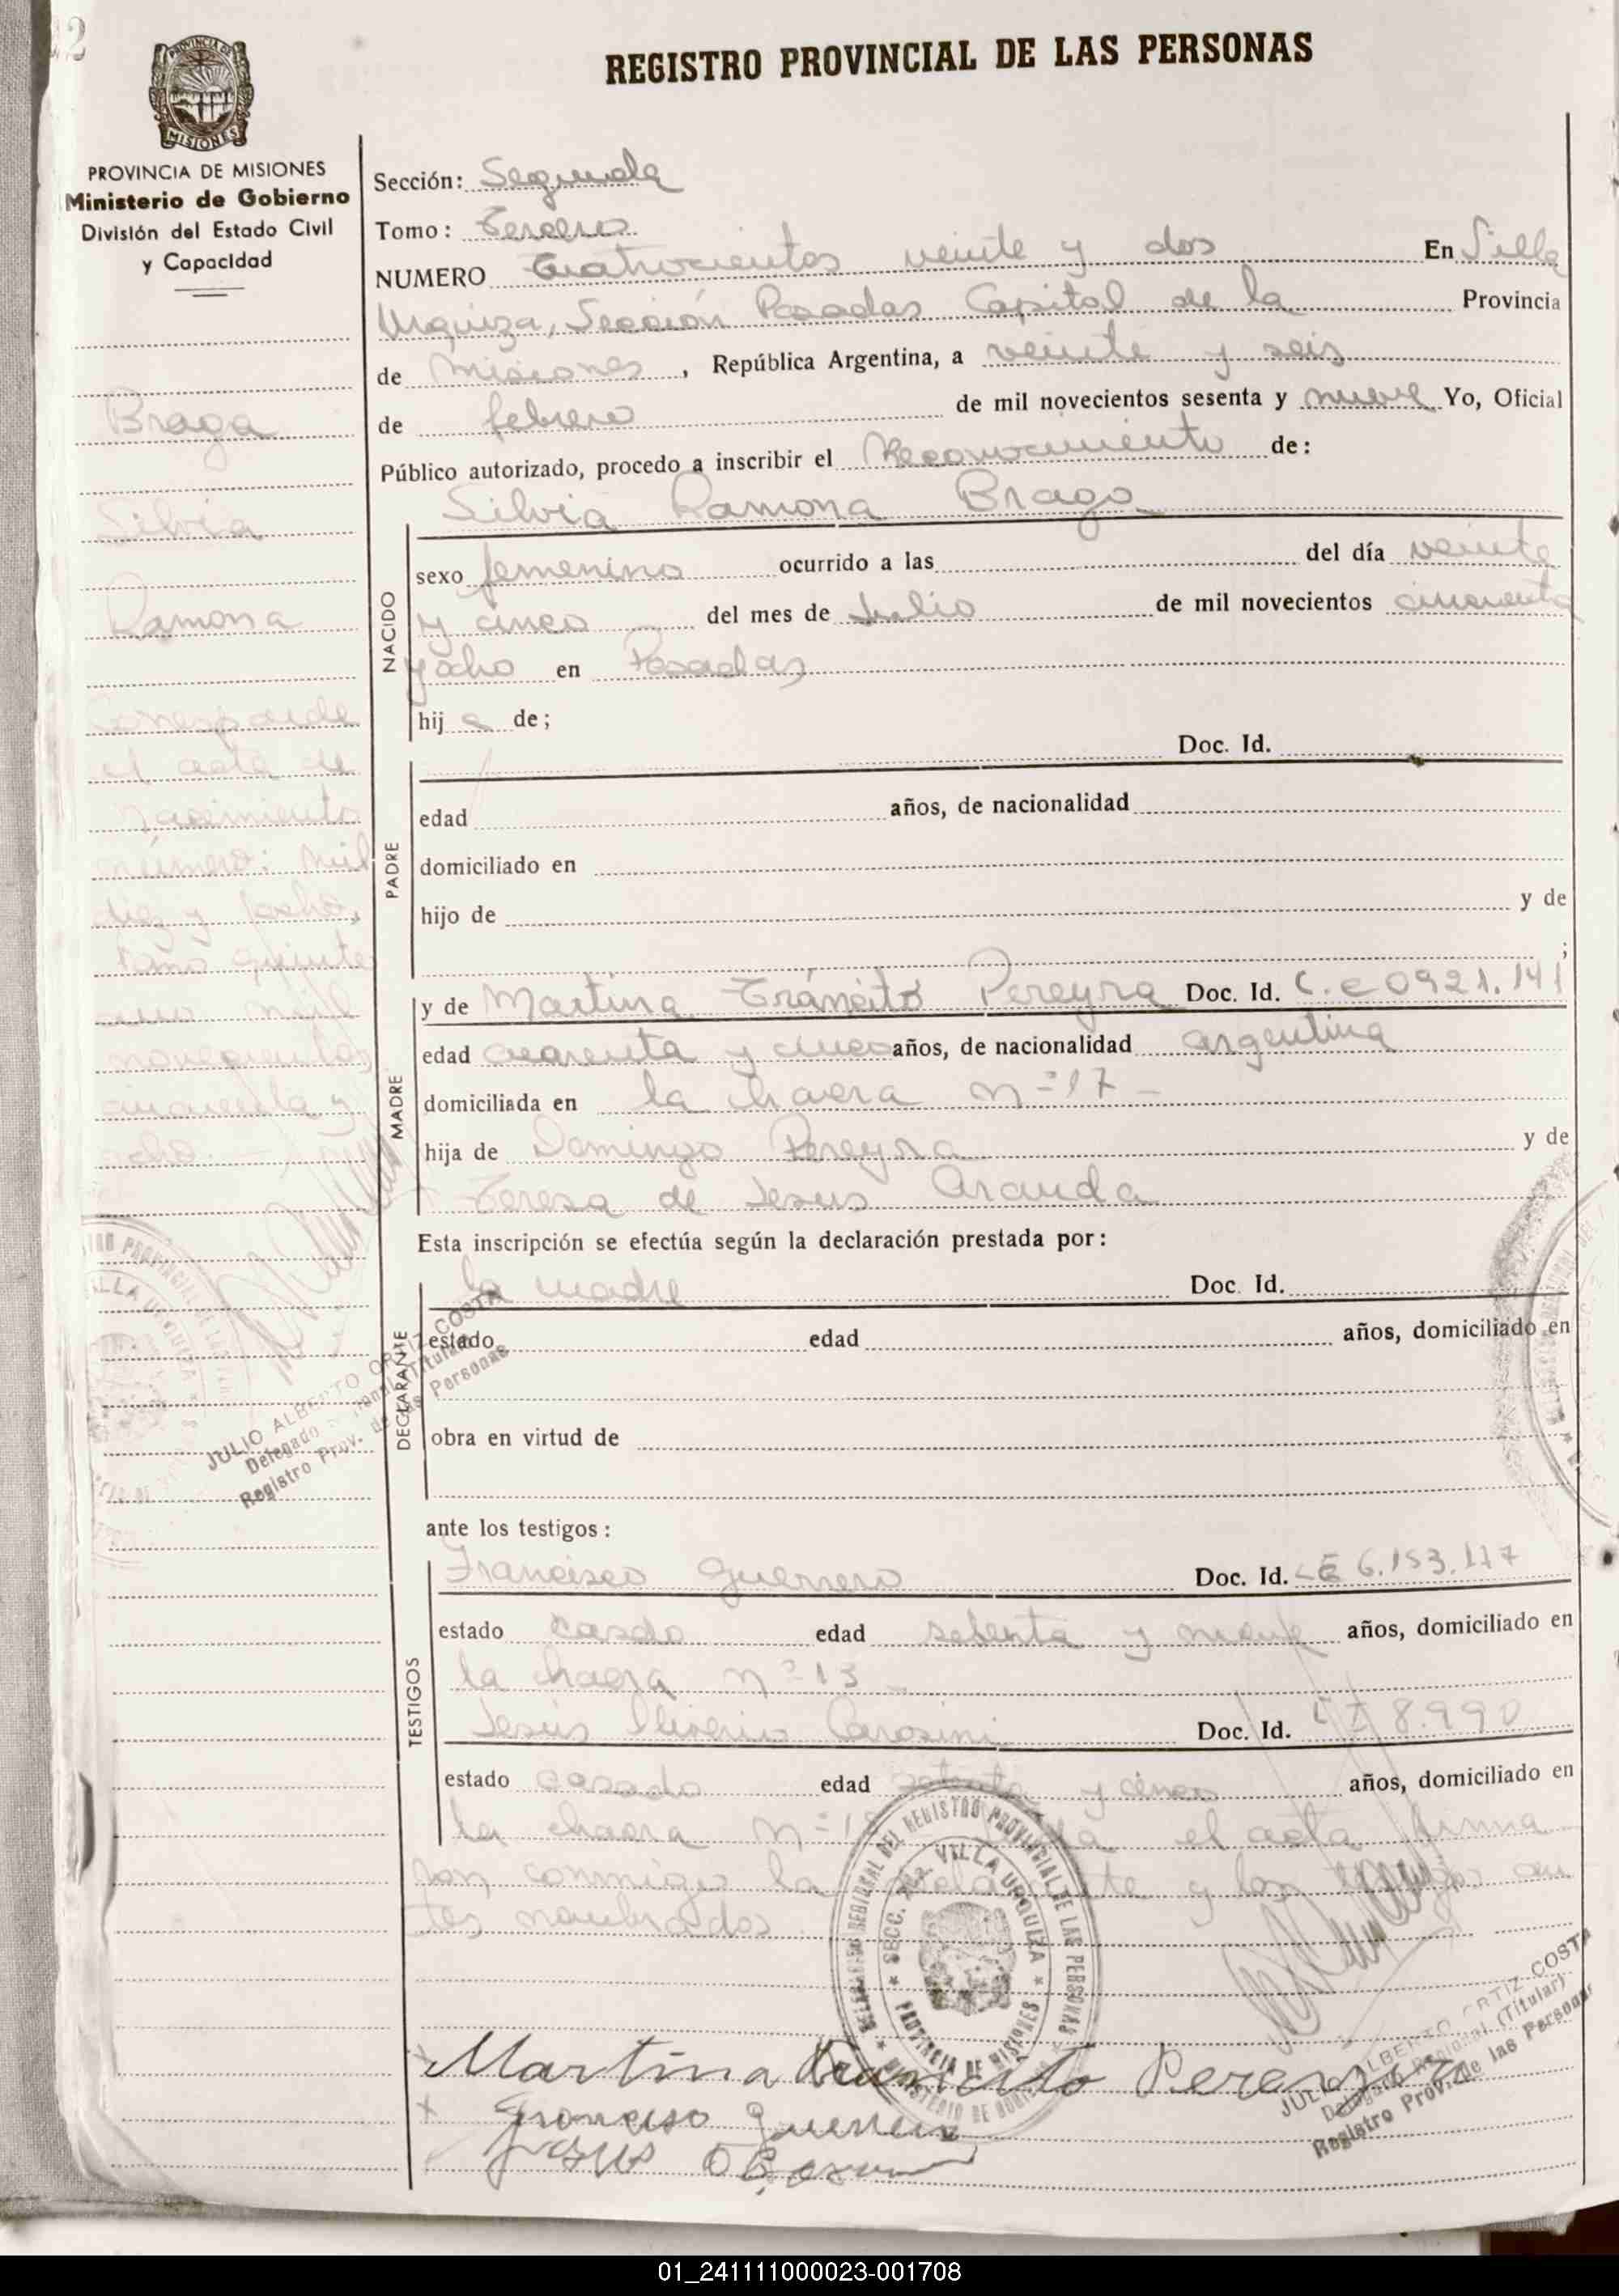 REGISTRO PROVINCIAL DE LAS PERSONAS
PROVINCIA DE MISIONES
MISIONES
PROVINCIA DE MISIONES
Ministerio de Gobierno
División del Estado Civil
y Capacidad
Braga
Silvia
Ramona
Corresponde
el acta de
nacimiento
número: mil
diez y ocho,
tomo quinto
año mil
novecientos
cincuenta y
ocho.
JULIO ALBERTO ORTIZ COSTA
Delegado Regional (Titular)
Registro Prov. de las Personas
Sección: Segunda
Tomo: Tercero
NUMERO Cuatrocientos veinte y dos En Villa
Urquiza, Sección Posadas Capital de la Provincia
de Misiones, República Argentina, a veinte y seis
de febrero de mil novecientos sesenta y nueve Yo, Oficial
Público autorizado, procedo a inscribir el Reconocimiento de:
Silvia Ramona Braga
NACIDO
sexo femenino ocurrido a las del día veinte
y cinco del mes de Julio de mil novecientos cincuenta
y ocho en Posadas
hija de;
PADRE
Doc. Id.
edad años, de nacionalidad
domiciliado en
hijo de y de
;
MADRE
y de Martina Tránsito Pereyra Doc. Id. C.C 0921.141
edad cuarenta y cinco años, de nacionalidad argentina
domiciliada en la chacra nº 17 -
hija de Domingo Pereyra y de
Teresa de Jesus Aranda
Esta inscripción se efectúa según la declaración prestada por:
DECLARANTE
la madre Doc. Id.
estado edad años, domiciliado en
obra en virtud de
ante los testigos:
TESTIGOS
Francisco Guerrero Doc. Id. LE 6.153.117
estado casdo edad setenta y nueve años, domiciliado en
la chacra nº 13 -
Jesús Carosini Doc. Id. 8.990
estado casado edad setenta y cinco años, domiciliado en
la chacra nº el acta firma
son conmigo la y los testigos an
tes nombrados
DELEGACION REGIONAL DEL REGISTRO PROVINCIAL DE LAS PERSONAS
SECC. VILLA URQUIZA
PROVINCIA DE MISIONES
MINISTERIO DE GOBIERNO
JULIO ALBERTO ORTIZ COSTA
Delegado Regional (Titular)
Registro Prov. de las Personas
Martina Trancito Pereyra
Francisco Guerrero
Jesus O Carosini
01_241111000023-001708